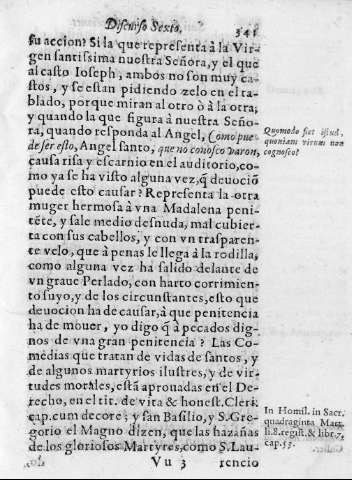 Discurso Sexto. 341
su accion? Si la que representa à la Vir-
gen santissima nuestra Señora, y el que
al casto Ioseph, ambos no son muy ca-
stos, y se estan pidiendo zelo en el ta-
blado, porque miran al otro ò à la otra;
y quando la que figura à nuestra Seño-
ra, quando responda al Angel, (como pue-
de ser esto, Angel santo, que no conosco varon,
causa risa y escarnio en el auditorio, co-
mo ya se ha visto alguna vez, q̃ deuociõ
puede esto causar? Representa la otra
muger hermosa à vna Madalena peni-
tẽte, y sale medio desnuda, mal cubier-
ta con sus cabellos, y con vn trasparen-
te velo, que à penas le llega à la rodilla,
como alguna vez ha salido delante de
vn graue Perlado, con harto corrimien-
to suyo, y de los circunstantes, esto que
deuocion ha de causar, à que penitencia
ha de mouer, yo digo q̃ à pecados dig-
nos de vna gran penitencia? Las Co-
medias que tratan de vidas de santos, y
de algunos martyrios ilustres, y de vir-
tudes morales, està aprouadas en el De-
recho, en el tit. de vita & honest. Cleri.
cap. cum decore; y san Basilio, y S. Gre-
gorio el Magno dizen, que las hazañas
de los gloriosos Martyres, como S. Lau-
Vu 3 rencio
Quomodo fiet istud,
quoniam virum non
cognosco?
In Homil. in Sacr.
quadraginta Mart.
li. 8. regist. & libr. 7.
cap. 53.